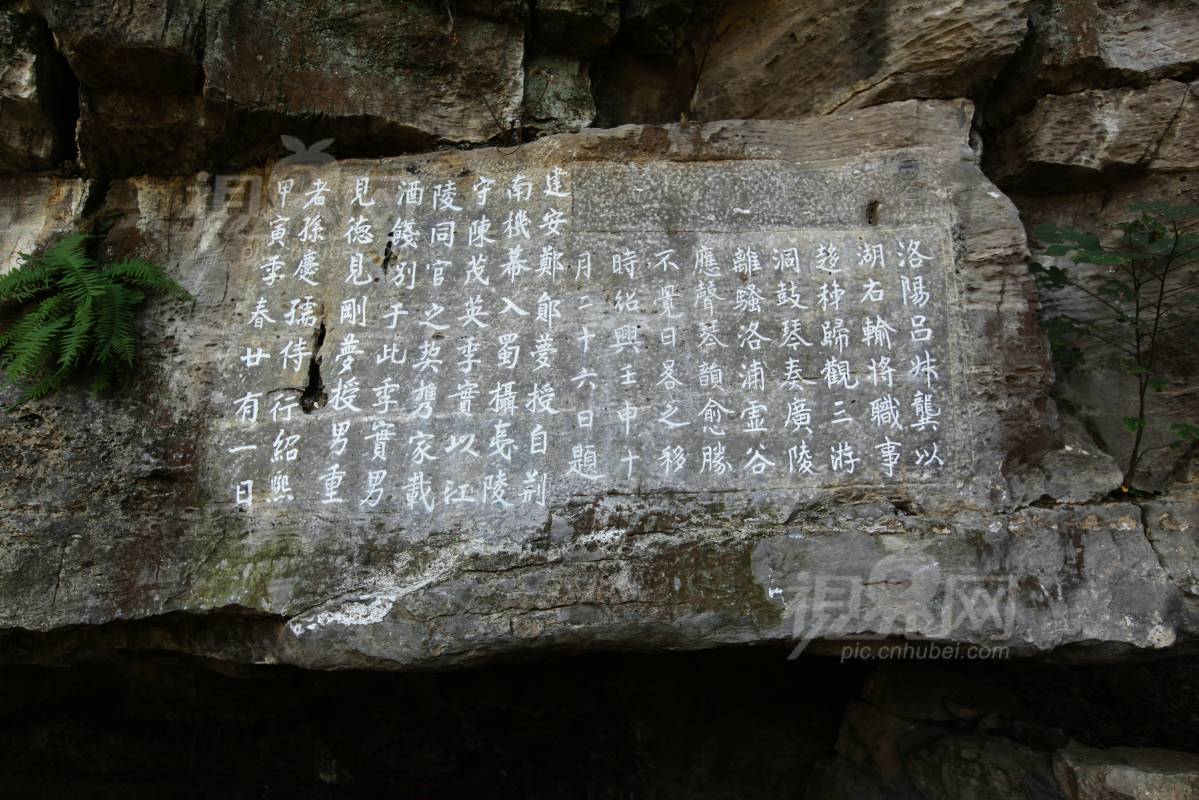 洛陽呂㭐龔以
湖右輸將職事
趍秭歸觀三游
洞鼓琴奏廣陵
離騷洛浦虛谷
應聲琴韻愈勝
不覺日晷之移
時紹興壬申十
月二十六日題
建安鄭郧夢授自荆
南機幕入蜀攝夷陵
守陳茂英季實以江
陵同官之契携家載
酒餞别于此季實男
見德見剛夢授男重
者孫慶孺侍行紹熙
甲寅季春廿有一日
视界网
pic.cnhubei.com